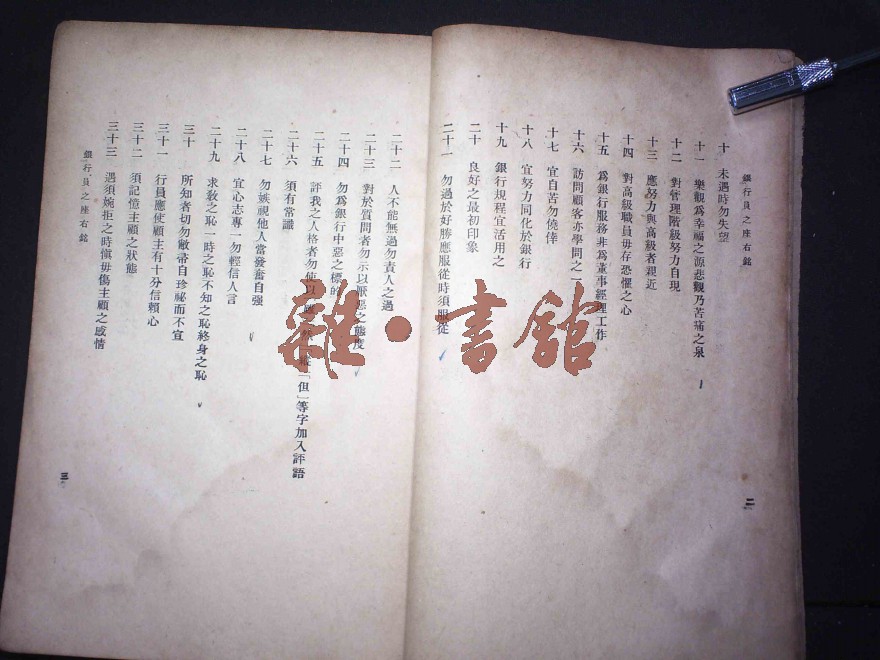 銀行員之座右銘
十　未遇時勿失望
十一　樂觀爲幸福之源悲觀乃苦痛之泉
十二　對管理階級努力自現
十三　應努力與高級者親近
十四　對高級職員毋存恐懼之心
十五　爲銀行服務非爲董事經理工作
十六　訪問顧客亦學問之一
十七　宜自苦勿僥倖
十八　宜努力同化於銀行
十九　銀行規程宜活用之
二十　良好之最初印象
二十一　勿過於好勝應服從時須服從
二
二十二　人不能無過勿責人之過
二十三　對於質問者勿示以厭惡之態度
二十四　勿爲銀行中惡之標的
二十五　評我之人格者勿使以「但」等字加入評語
二十六　須有常識
二十七　勿嫉視他人當發奮自强
二十八　宜心志專一勿輕信人言
二十九　求敎之恥一時之恥不知之恥終身之恥
三十　所知者切勿敝帚自珍祕而不宣
三十一　行員應使顧主有十分信賴心
三十二　須記憶主顧之狀態
三十三　遇須婉拒之時愼毋傷主顧之感情
銀行員之座右銘
三
雜·書館